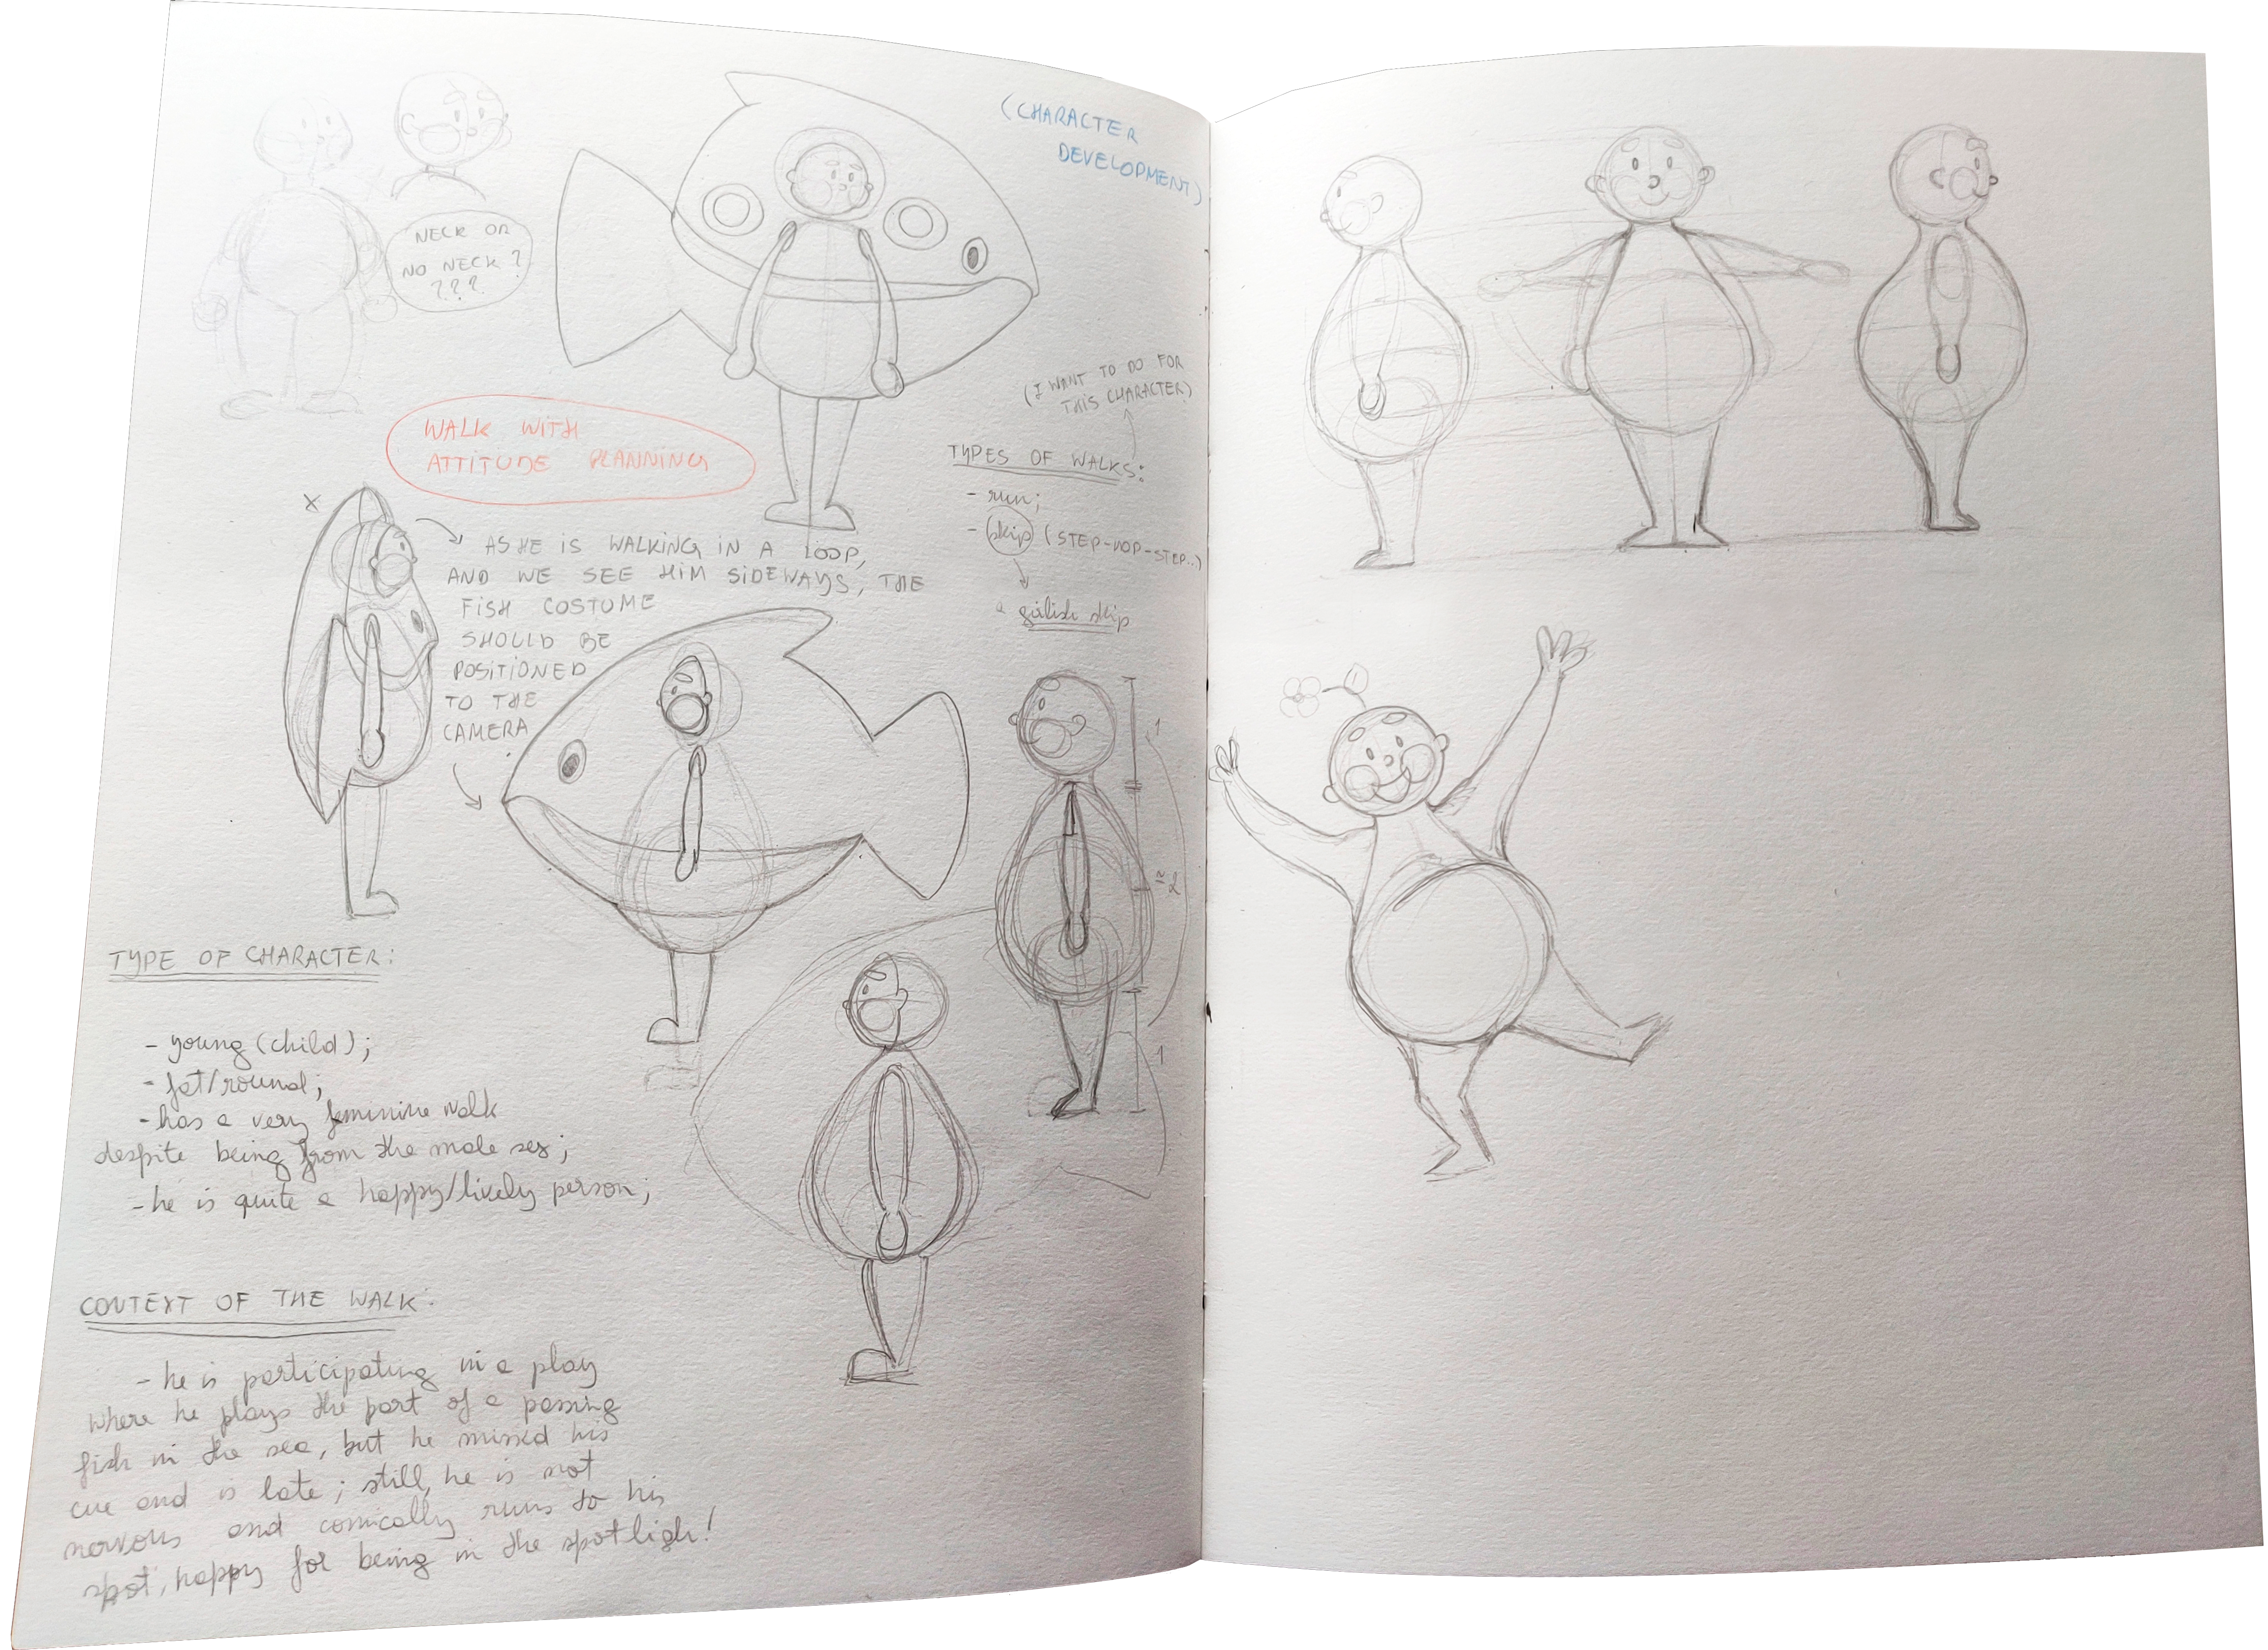 (CHARACTER
DEVELOPMENT)
NECK OR
NO NECK?
???
WALK WITH
ATTITUDE PLANNING
(I WANT TO DO FOR
THIS CHARACTER)
TYPES OF WALKS:
- run;
- skip (STEP-HOP-STEP..)
a girlish skip
1
≈2
1
X
AS HE IS WALKING IN A LOOP,
AND WE SEE HIM SIDEWAYS, THE
FISH COSTUME
SHOULD BE
POSITIONED
TO THE
CAMERA
TYPE OF CHARACTER:
- young (child);
- fat/round;
- has a very feminine walk
despite being from the male sex;
- he is quite a happy/lively person;
CONTEXT OF THE WALK:
- he is participating in a play
where he plays the part of a passing
fish in the sea, but he missed his
cue and is late; still, he is not
nervous and comically runs to his
spot, happy for being in the spotligh!